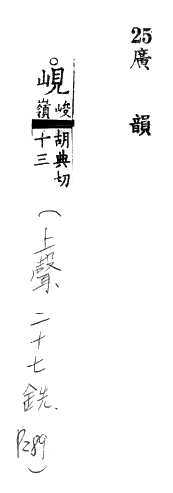 25
廣韻
峴
峻嶺
胡典切
十三
(上聲、二十七銑、P289)